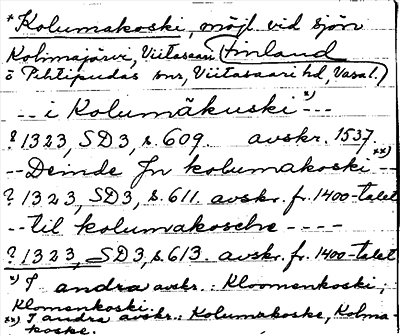 *Kolumakoski, möjl. vid sjön
Kolimajärvi, Viitasaari (Finland
ö Pihtipudas snr, Viitasaari hd, Vasa l.)
-- i Kolumäkuski x) ---
? 1323, SD3, s. 609. avskr. 1537.
-- Deinde Jn kolumakoski -- xx)
? 1323, SD3, s. 611. avskr. fr. 1400-talet
-- til kolumakosche ----
? 1323, SD3, s. 613. avskr. fr. 1400-talet
x) I andra avskr.: Kloomenkoski,
Klomenkoski.
xx) I andra avskr.: Kolumakoske, Kolma-
koske.